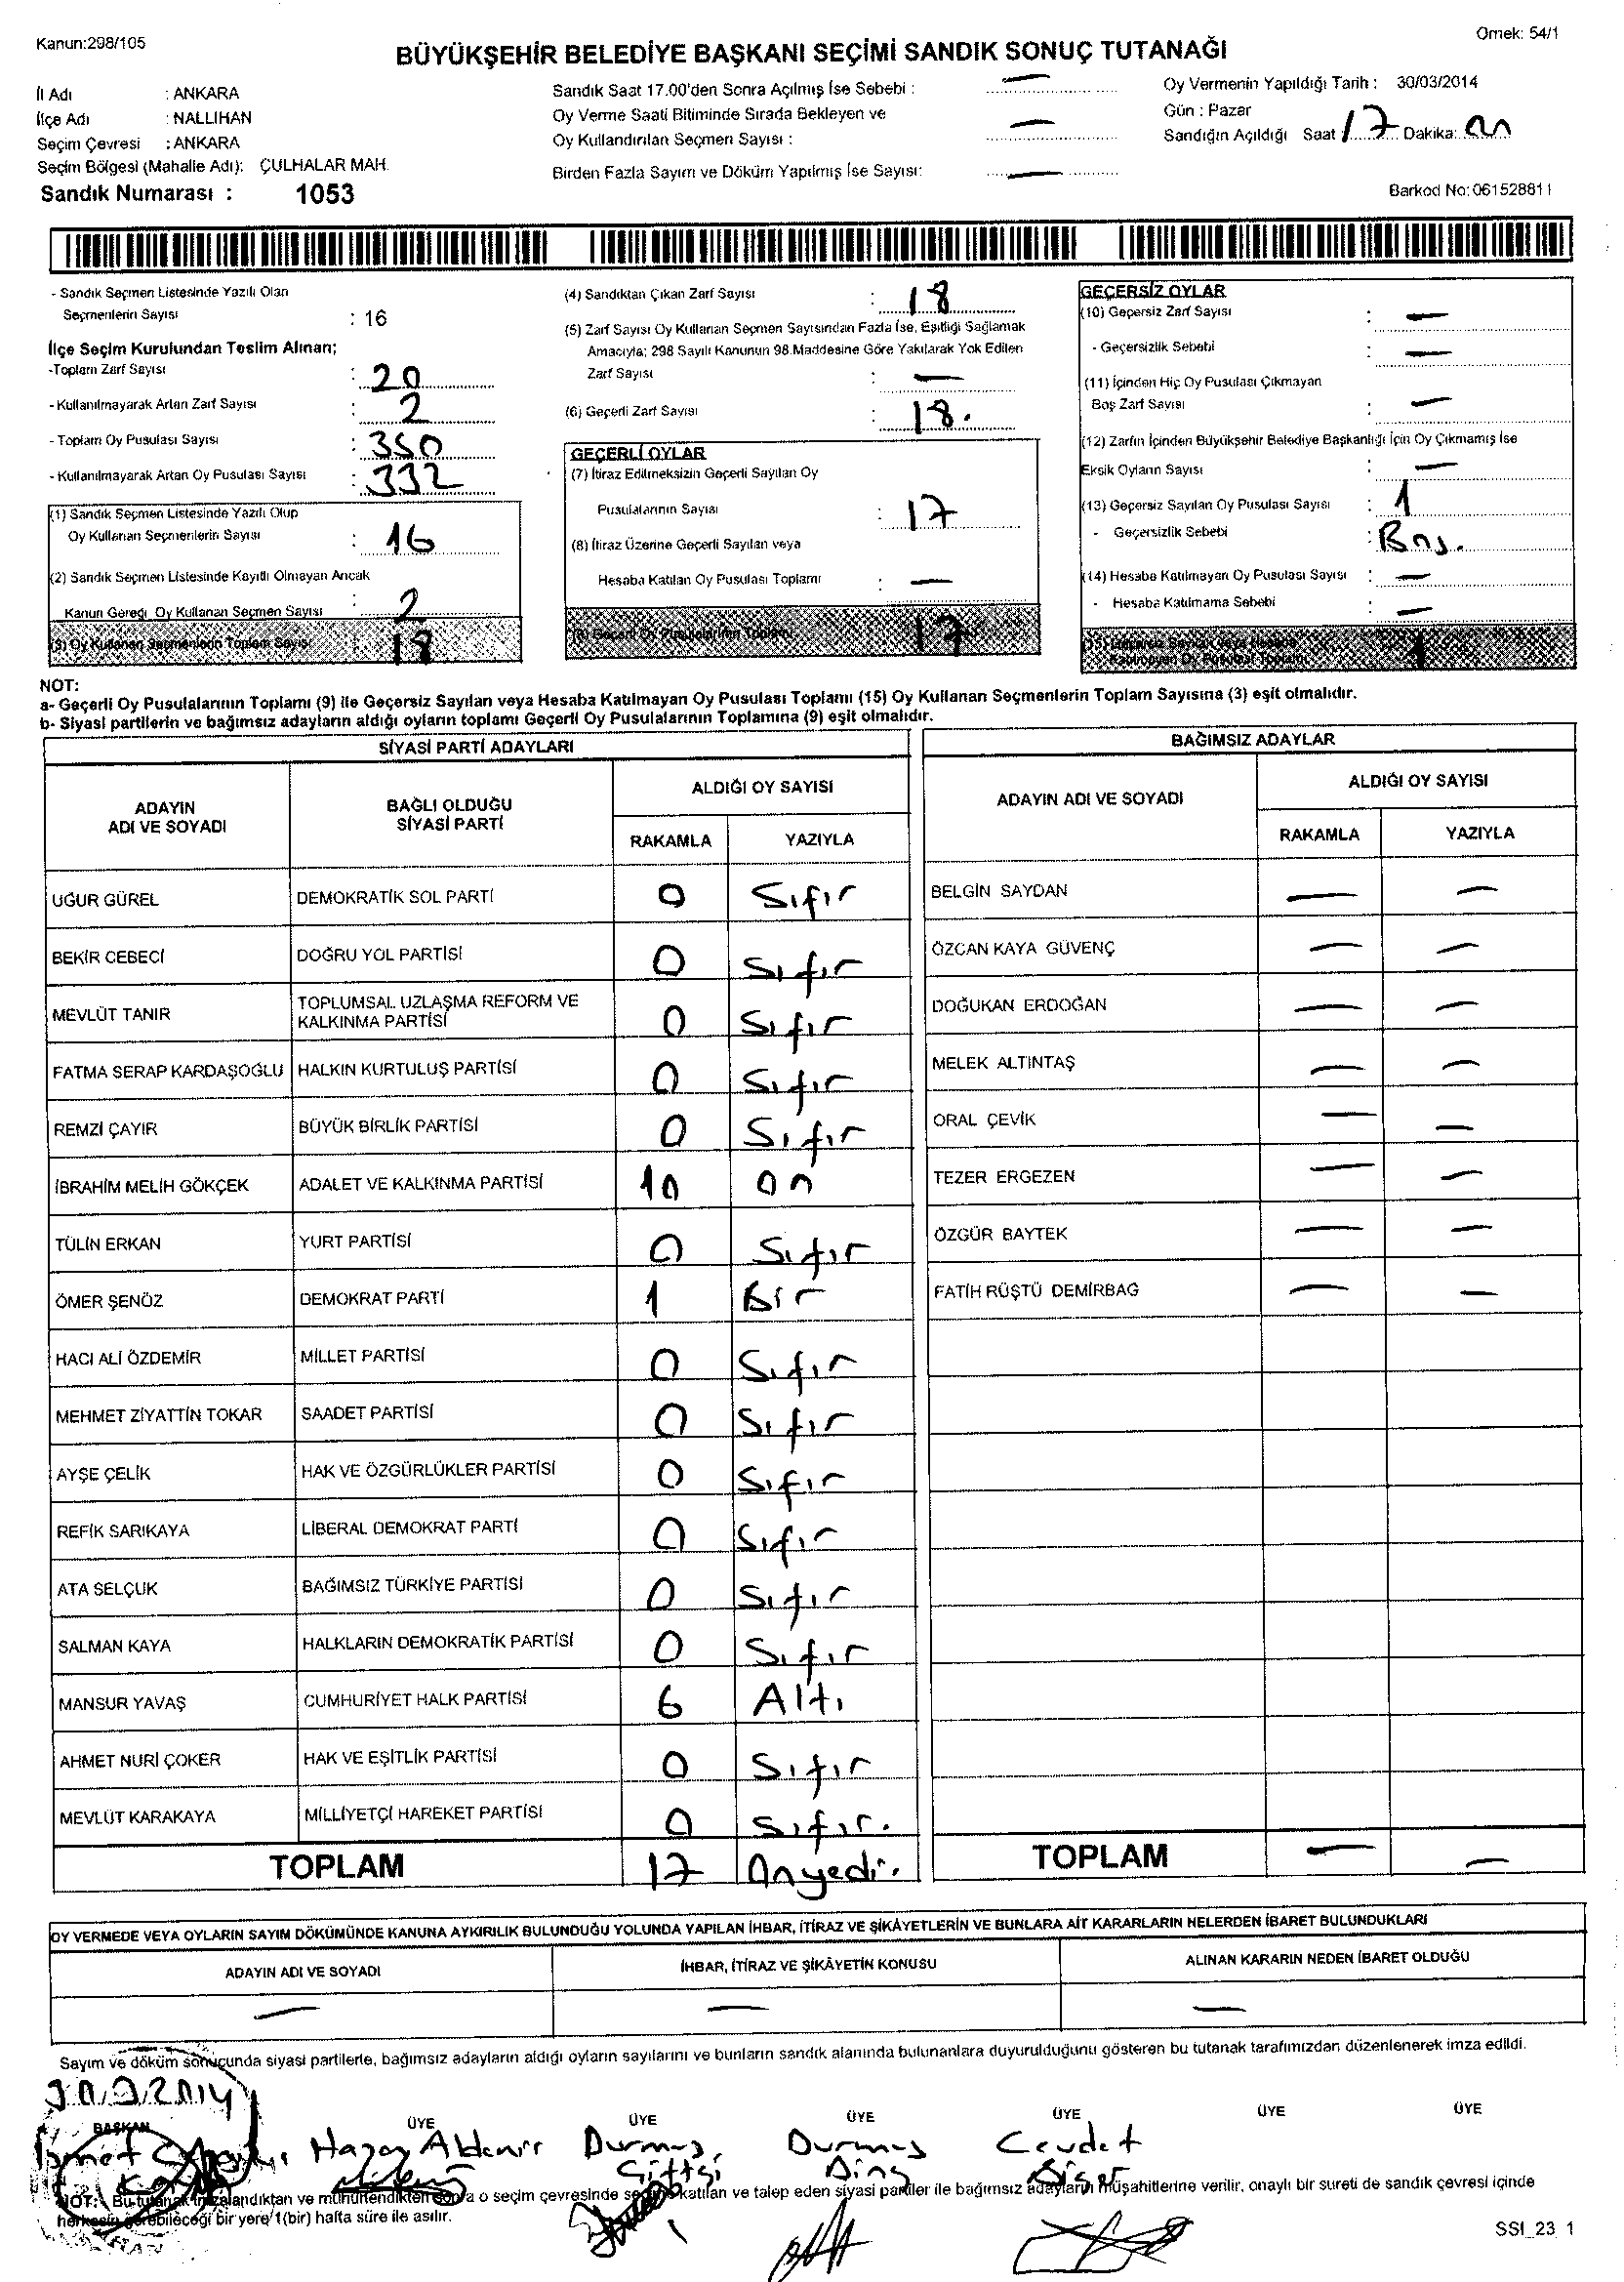 Kanun:298/105
Örnek: 54/1
BÜYÜKŞEHİR BELEDİYE BAŞKANI SEÇİMİ SANDIK SONUÇ TUTANAĞI
İl Adı : ANKARA
İlçe Adı : NALLIHAN
Seçim Çevresi : ANKARA
Seçim Bölgesi (Mahalle Adı): ÇULHALAR MAH.
Sandık Numarası : 1053
Sandık Saat 17.00'den Sonra Açılmış İse Sebebi : —
Oy Verme Saati Bitiminde Sırada Bekleyen ve
Oy Kullandırılan Seçmen Sayısı : —
Birden Fazla Sayım ve Döküm Yapılmış İse Sayısı: —
Oy Vermenin Yapıldığı Tarih : 30/03/2014
Gün : Pazar
Sandığın Açıldığı Saat 17 Dakika: 00
Barkod No:061528811
- Sandık Seçmen Listesinde Yazılı Olan
Seçmenlerin Sayısı : 16
İlçe Seçim Kurulundan Teslim Alınan;
-Toplam Zarf Sayısı : 20
- Kullanılmayarak Artan Zarf Sayısı : 2
- Toplam Oy Pusulası Sayısı : 350
- Kullanılmayarak Artan Oy Pusulası Sayısı : 332
(1) Sandık Seçmen Listesinde Yazılı Olup
Oy Kullanan Seçmenlerin Sayısı : 16
(2) Sandık Seçmen Listesinde Kayıtlı Olmayan Ancak
Kanun Gereği Oy Kullanan Seçmen Sayısı : 2
(3) Oy Kullanan Seçmenlerin Toplam Sayısı 18
(4) Sandıktan Çıkan Zarf Sayısı : 18
(5) Zarf Sayısı Oy Kullanan Seçmen Sayısından Fazla İse, Eşitliği Sağlamak
Amacıyla; 298 Sayılı Kanunun 98.Maddesine Göre Yakılarak Yok Edilen
Zarf Sayısı : —
(6) Geçerli Zarf Sayısı : 18.
GEÇERLİ OYLAR
(7) İtiraz Edilmeksizin Geçerli Sayılan Oy
Pusulalarının Sayısı : 17
(8) İtiraz Üzerine Geçerli Sayılan veya
Hesaba Katılan Oy Pusulası Toplamı : —
(9) Geçerli Oy Pusulalarının Toplamı 17
GEÇERSİZ OYLAR
(10) Geçersiz Zarf Sayısı : —
- Geçersizlik Sebebi : —
(11) İçinden Hiç Oy Pusulası Çıkmayan
Boş Zarf Sayısı : —
(12) Zarfın İçinden Büyükşehir Belediye Başkanlığı İçin Oy Çıkmamış İse
Eksik Oyların Sayısı : —
(13) Geçersiz Sayılan Oy Pusulası Sayısı : 1
- Geçersizlik Sebebi : Boş.
(14) Hesaba Katılmayan Oy Pusulası Sayısı : —
- Hesaba Katılmama Sebebi : —
(15) Geçersiz Sayılan veya Hesaba
Katılmayan Oy Pusulası Toplamı 1
NOT:
a- Geçerli Oy Pusulalarının Toplamı (9) ile Geçersiz Sayılan veya Hesaba Katılmayan Oy Pusulası Toplamı (15) Oy Kullanan Seçmenlerin Toplam Sayısına (3) eşit olmalıdır.
b- Siyasi partilerin ve bağımsız adayların aldığı oyların toplamı Geçerli Oy Pusulalarının Toplamına (9) eşit olmalıdır.
SİYASİ PARTİ ADAYLARI
ADAYIN ADI VE SOYADI BAĞLI OLDUĞU SİYASİ PARTİ ALDIĞI OY SAYISI
RAKAMLA YAZIYLA
UĞUR GÜREL DEMOKRATİK SOL PARTİ 0 Sıfır
BEKİR CEBECİ DOĞRU YOL PARTİSİ 0 Sıfır
MEVLÜT TANIR TOPLUMSAL UZLAŞMA REFORM VE KALKINMA PARTİSİ 0 Sıfır
FATMA SERAP KARDAŞOĞLU HALKIN KURTULUŞ PARTİSİ 0 Sıfır
REMZİ ÇAYIR BÜYÜK BİRLİK PARTİSİ 0 Sıfır
İBRAHİM MELİH GÖKÇEK ADALET VE KALKINMA PARTİSİ 10 On
TÜLİN ERKAN YURT PARTİSİ 0 Sıfır
ÖMER ŞENÖZ DEMOKRAT PARTİ 1 Bir
HACI ALİ ÖZDEMİR MİLLET PARTİSİ 0 Sıfır
MEHMET ZİYATTİN TOKAR SAADET PARTİSİ 0 Sıfır
AYŞE ÇELİK HAK VE ÖZGÜRLÜKLER PARTİSİ 0 Sıfır
REFİK SARIKAYA LİBERAL DEMOKRAT PARTİ 0 Sıfır
ATA SELÇUK BAĞIMSIZ TÜRKİYE PARTİSİ 0 Sıfır
SALMAN KAYA HALKLARIN DEMOKRATİK PARTİSİ 0 Sıfır
MANSUR YAVAŞ CUMHURİYET HALK PARTİSİ 6 Altı
AHMET NURİ ÇOKER HAK VE EŞİTLİK PARTİSİ 0 Sıfır
MEVLÜT KARAKAYA MİLLİYETÇİ HAREKET PARTİSİ 0 Sıfır.
TOPLAM 17 Onyedi.
BAĞIMSIZ ADAYLAR
ADAYIN ADI VE SOYADI ALDIĞI OY SAYISI
RAKAMLA YAZIYLA
BELGİN SAYDAN — —
ÖZCAN KAYA GÜVENÇ — —
DOĞUKAN ERDOĞAN — —
MELEK ALTINTAŞ — —
ORAL ÇEVİK — —
TEZER ERGEZEN — —
ÖZGÜR BAYTEK — —
FATİH RÜŞTÜ DEMİRBAĞ — —
TOPLAM — —
OY VERMEDE VEYA OYLARIN SAYIM DÖKÜMÜNDE KANUNA AYKIRILIK BULUNDUĞU YOLUNDA YAPILAN İHBAR, İTİRAZ VE ŞİKÂYETLERİN VE BUNLARA AİT KARARLARIN NELERDEN İBARET BULUNDUKLARI
ADAYIN ADI VE SOYADI İHBAR, İTİRAZ VE ŞİKÂYETİN KONUSU ALINAN KARARIN NEDEN İBARET OLDUĞU
— — —
Sayım ve döküm sonucunda siyasi partilerle, bağımsız adayların aldığı oyların sayılarını ve bunların sandık alanında bulunanlara duyurulduğunu gösteren bu tutanak tarafımızdan düzenlenerek imza edildi.
30.3.2014
BAŞKAN ÜYE ÜYE ÜYE ÜYE ÜYE ÜYE
Durmuş Durmuş Cevdet
Çiftçi Dinç
NOT: Bu tutanak imzalandıktan ve mühürlendikten sonra o seçim çevresinde seçime katılan ve talep eden siyasi partiler ile bağımsız adayların müşahitlerine verilir, onaylı bir sureti de sandık çevresi içinde
herkesin görebileceği bir yere 1(bir) hafta süre ile asılır.
SSI_23_1